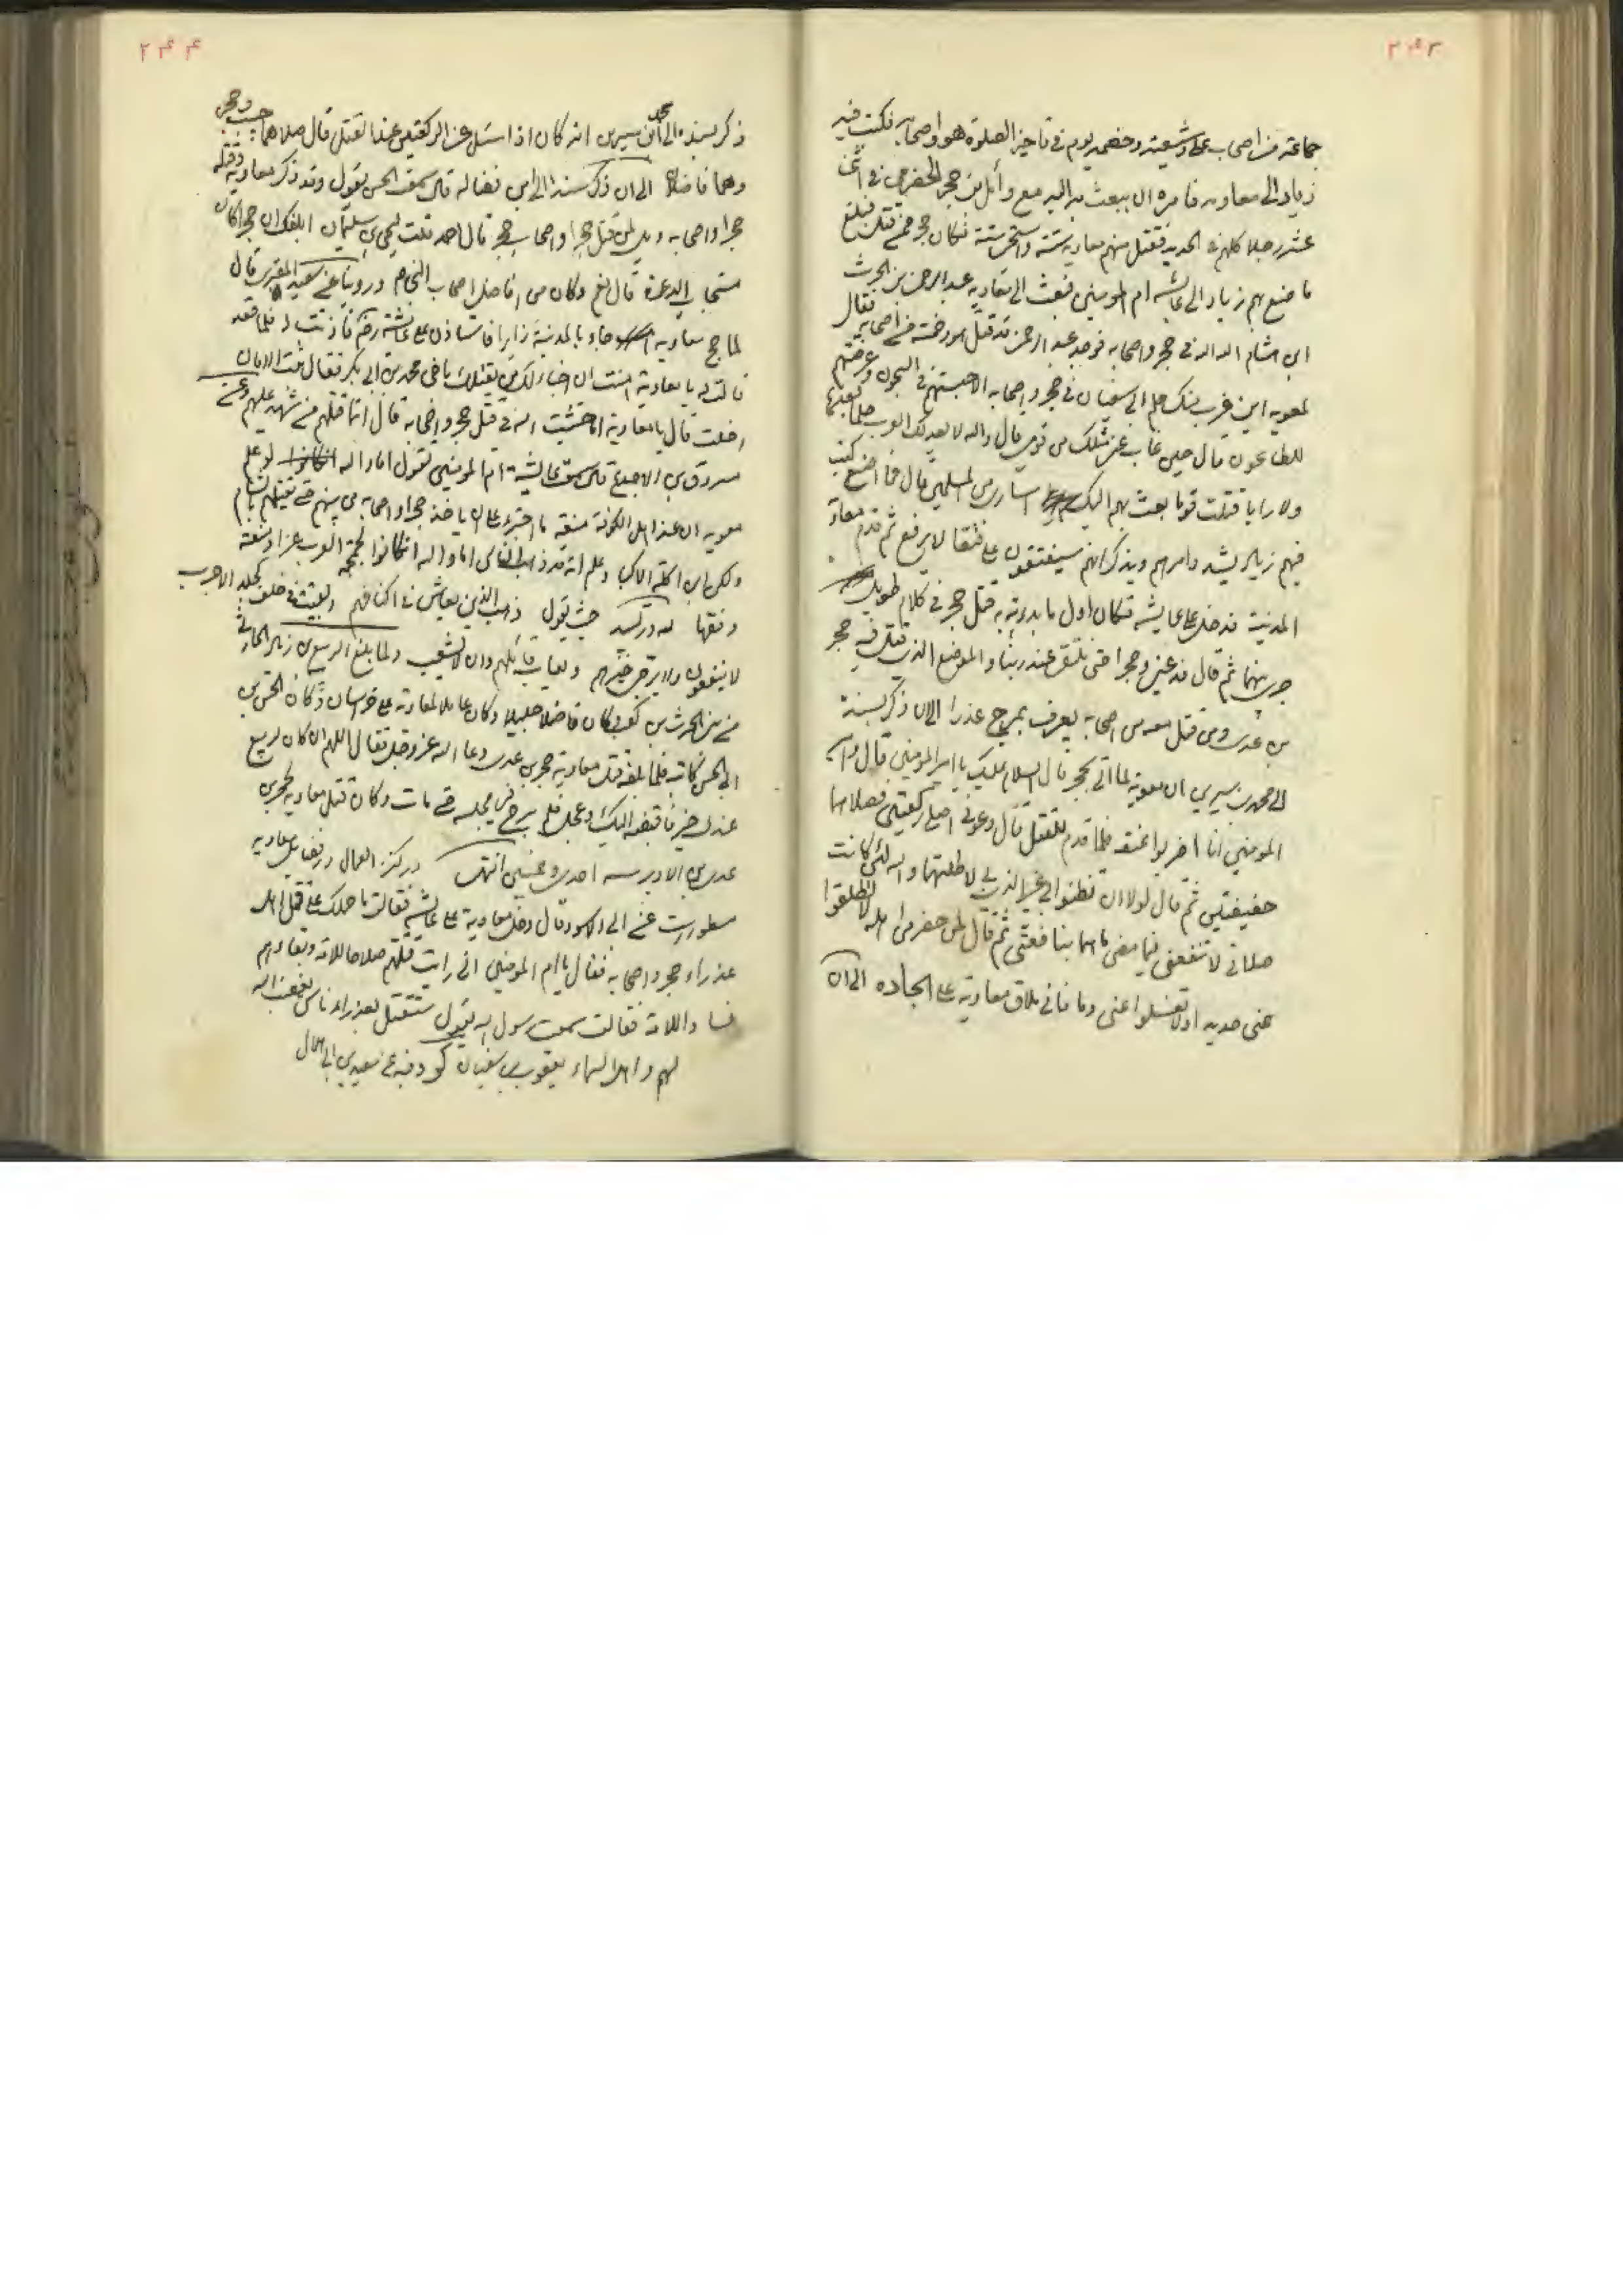 ۲۴۳
جماعته من اصحاب علی و شیعته و حصبه یوم فی تاخیر الصلوة هو و اصحابه فکتب فیه
زیاد الی معاویه فامره ان یبعث به الیه مع وائل بن حجر الحضرمی فی اثنی
عشر رجلا کلهم فی الحدید فقتل منهم معاویه ستة و استحیی ستة فکان حجر ممن قتل فبلغ
ما صنع بهم زیاد الی عائشه ام المومنین فبعث الی معاویه عبد الرحمن بن الحرث
ابن هشام الله الله فی حجر و اصحابه فوجده عبد الرحمن قد قتل هو و خمسة من اصحابه فقال
لمعویه این عزب عنک حلم ابی سفیان فی حجر و اصحابه الا حبستهم فی السجون و عرضتهم
للطاعون قال حین غاب عنی مثلک من قومی قال والله لا تعد لک العرب حلما بعدها
ولا رایا قتلت قوما بعث بهم الیک اساری من المسلمین قال فما اصنع کتب
فیهم زیاد یشدد امرهم و یذکر انهم سیفتقون علی فتقا لا یرقع ثم قدم معاویة
المدینة فدخل علی عایشه فکان اول ما بدءته به قتل حجر فی کلام طویل
جری بینهما ثم قال فدعینی و حجرا حتی نلتقی عند ربنا و الموضع الذی قتل فیه حجر
بن عدی و من قتل معه من اصحابه یعرف بمرج عذرا الی ان ذکر بسنده
الی محمد بن سیرین ان معویة لما اتی بحجر قال السلام علیک یا امیر المومنین قال و امیر
المومنین انا اضربوا عنقه فلما قدم للقتل قال دعونی اصلی رکعتین فصلاهما
خفیفتین ثم قال لولا ان تظنوا بی غیر الذی بی لاطلتهما والله لئن کانت
صلاتی لا تنفعنی فیما مضی ما هما بنافعتی ثم قال لمن حضر من اهله لا تطلقوا
عنی حدیدا ولا تغسلوا عنی دما فانی ملاق معاویة علی الجاده الی ان
۲۴۴
ذکر بسنده الی محمد ابن سیرین انه کان اذا سئل عن الرکعتین عند القتل قال صلاهما خبیب و حجر
و هما فاضلان الی ان ذکر بسنده الی ابن فضاله قال سمعت الحسن یقول و قد ذکر معاویة و قتله
حجرا و اصحابه ویل لمن قتل حجرا و اصحاب حجر قال احمد قلت لیحیی بن سلیمان ابلغک ان حجرا کان
مستجاب الدعوة قال نعم و کان من افاضل اصحاب النبی صلعم و روینا عن سعید المقبری قال
لما حج معاویه جاء بالمدینة زایرا فاستاذن علی عائشة رضی فاذنت له فلما قعد
قالت له یا معاویة امنت ان اخبأ لک من یقتلک باخی محمد بن ابی بکر فقال بیت الامان
دخلت قالت یا معاویة اما خشیت الله فی قتل حجر و اصحابه قال انما قتلهم من شهد علیهم و عن
مسروق بن الاجدع قال سمعت عایشة ام المومنین تقول اما والله لو علم
معویه ان عند اهل الکوفة منعة ما اجترء علی ان یاخذ حجرا و اصحابه من بینهم حتی یقتلهم بالشام
ولکن ابن اکلة الاکباد علم انه قد ذهب الناس اما والله ان کانوا لجمجمة العرب عزا و منعة
و فقها لله در لبید حیث یقول ذهب الذین یعاش فی اکنافهم و بقیت فی خلف کجلد الاجرب
لا ینفعون ولا یرجی خیرهم و یعاب قائلهم و ان لم یشغب و لما بلغ الربیع بن زیاد الحارثی
من بنی الحرث بن کعب و کان فاضلا جلیلا و کان عاملا لمعاویة علی خراسان و کان الحسن بن
ابی الحسن کاتبه فلما بلغه قتل معاویة حجر بن عدی دعا الله عز و جل فقال اللهم ان کان لربیع
عندک خیر فاقبضه الیک و عجل فلم یبرح من مجلسه حتی مات و کان قتل معاویه لحجر بن
عدی بن الادبر سنه احدی و خمسین انتهی در کنز العمال در فضایل معاویه
مسطور است عن ابی الاسود قال دخل معاویة علی عائشه فقالت ما حملک علی قتل اهل
عذراء حجر و اصحابه فقال یا ام المومنین انی رایت قتلهم صلاحا للامة و بقاءهم
فسادا للامة فقالت سمعت رسول الله یقول ستقتل بعذراء ناس یغضب الله
لهم و اهل السماء یعقوب بن سفیان کر و فیه عن سعید بن ابی هلال